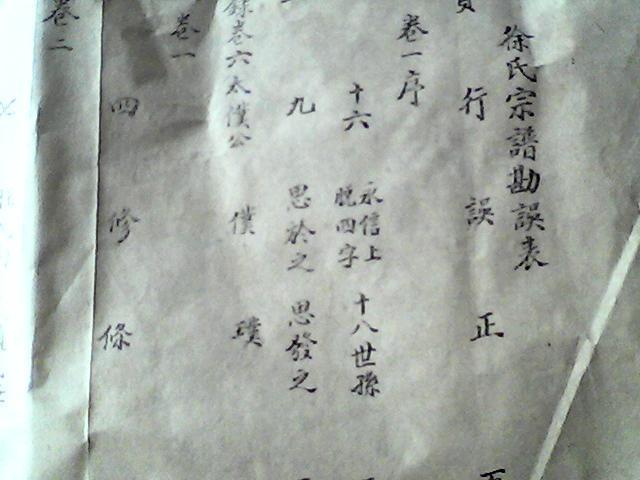 徐氏宗譜勘誤表
頁 行 誤 正
卷一序
十六 永信上脫四字 十八世孫
九 思於之 思發之
錄卷六太僕公 僕 璞
卷一
四 修 條
卷二